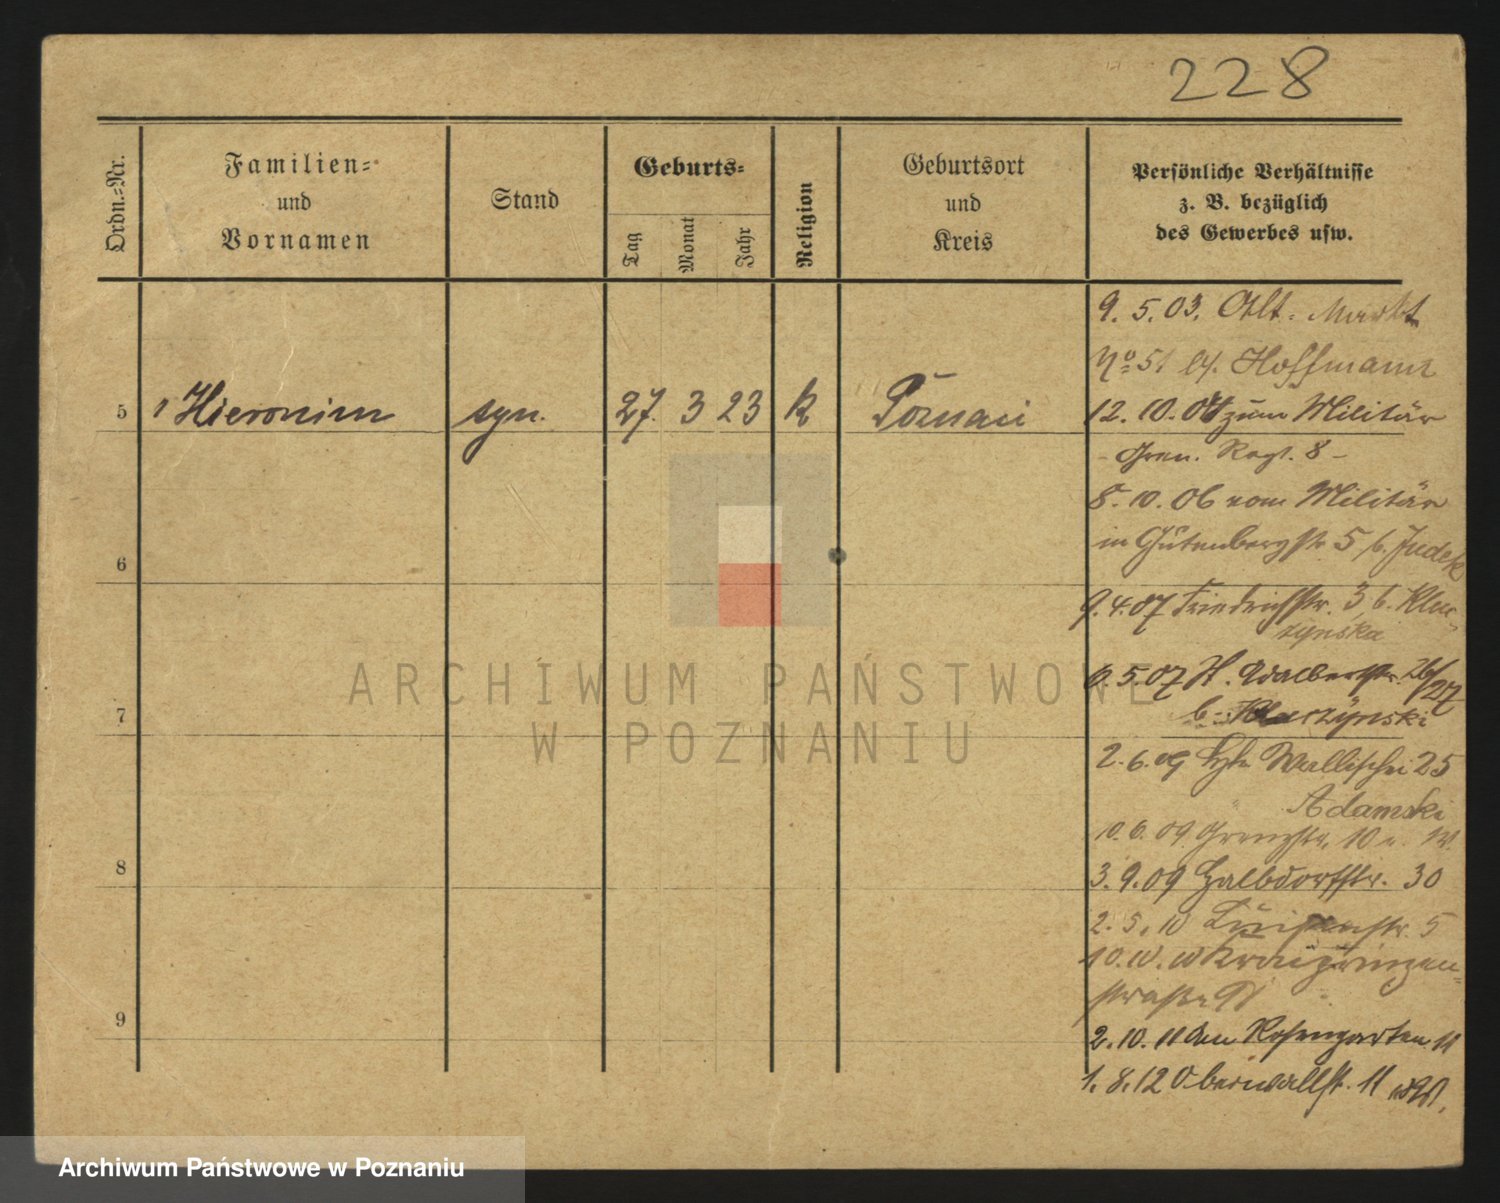 228
Ordn.=Nr.
Familien=
und
Vornamen
Stand
Geburts=
Tag
Monat
Jahr
Religion
Geburtsort
und
Kreis
Persönliche Verhältnisse
z. B. bezüglich
des Gewerbes usw.
5 Hieronim syn. 27. 3 23 k Poznań
6
7
8
9
9. 5. 03. Alt. Markt
No 51 Hoffmann
12. 10. 04 zum Militär
- Gren. Regt. 8 -
5. 10. 06 vom Militär
in Gutenbergstr 5 b.
9. 4. 07 Friedrichstr. 3 b. Klu-
zynska
6. 5. 07 H. Adalbertstr. 26/27
b.
2. 6. 09 Wallischei 25
Adamski
10. 6. 09 Grenzstr. 10
3. 9. 09 Halbdorfstr. 30
2. 5. 10 Luisenstr. 5
10. 10. 10 Kronprinzen-
straße
2. 10. 11 Am Rosengarten 11
1. 8. 12 Oberwallstr. 11
ARCHIWUM PAŃSTWOWE
W POZNANIU
Archiwum Państwowe w Poznaniu